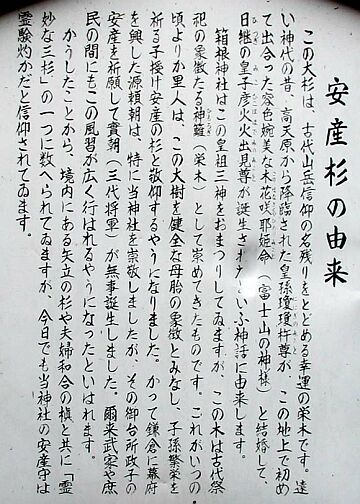 安産杉の由来
この大杉は、古代山岳信仰の名残りをとどめる幸運の栄木です。遠
い神代の昔、高天原から降臨された皇孫瓊瓊杵尊が、この地上で初め
て出合った容色婉美な木花咲耶姫命（富士山の神様）と結婚して、
日継の皇子彦火火出見尊が誕生されたといふ神話に由来します。
箱根神社はこの皇祖三神をおまつりしてゐますが、この木は古代祭
祀の象徴たる神籬（栄木）として崇めてきたものです。これがいつの
頃よりか里人は、この大樹を健全な母胎の象徴とみなし、子孫繁栄を
祈る子授け安産の杉と敬仰するやうになりました。かつて鎌倉に幕府
を興した源頼朝は、特に当神社を崇敬しましたが、その御台所政子の
安産を祈願して実朝（三代将軍）が無事誕生しました。爾来武家や庶
民の間にもこの風習が広く行はれるやうになったといはれます。
かうしたことから、境内にある矢立の杉や夫婦和合の槙と共に「霊
妙な三杉」の一つに数へられてゐますが、今日でも当神社の安産守は
霊験灼かだと信仰されてゐます。